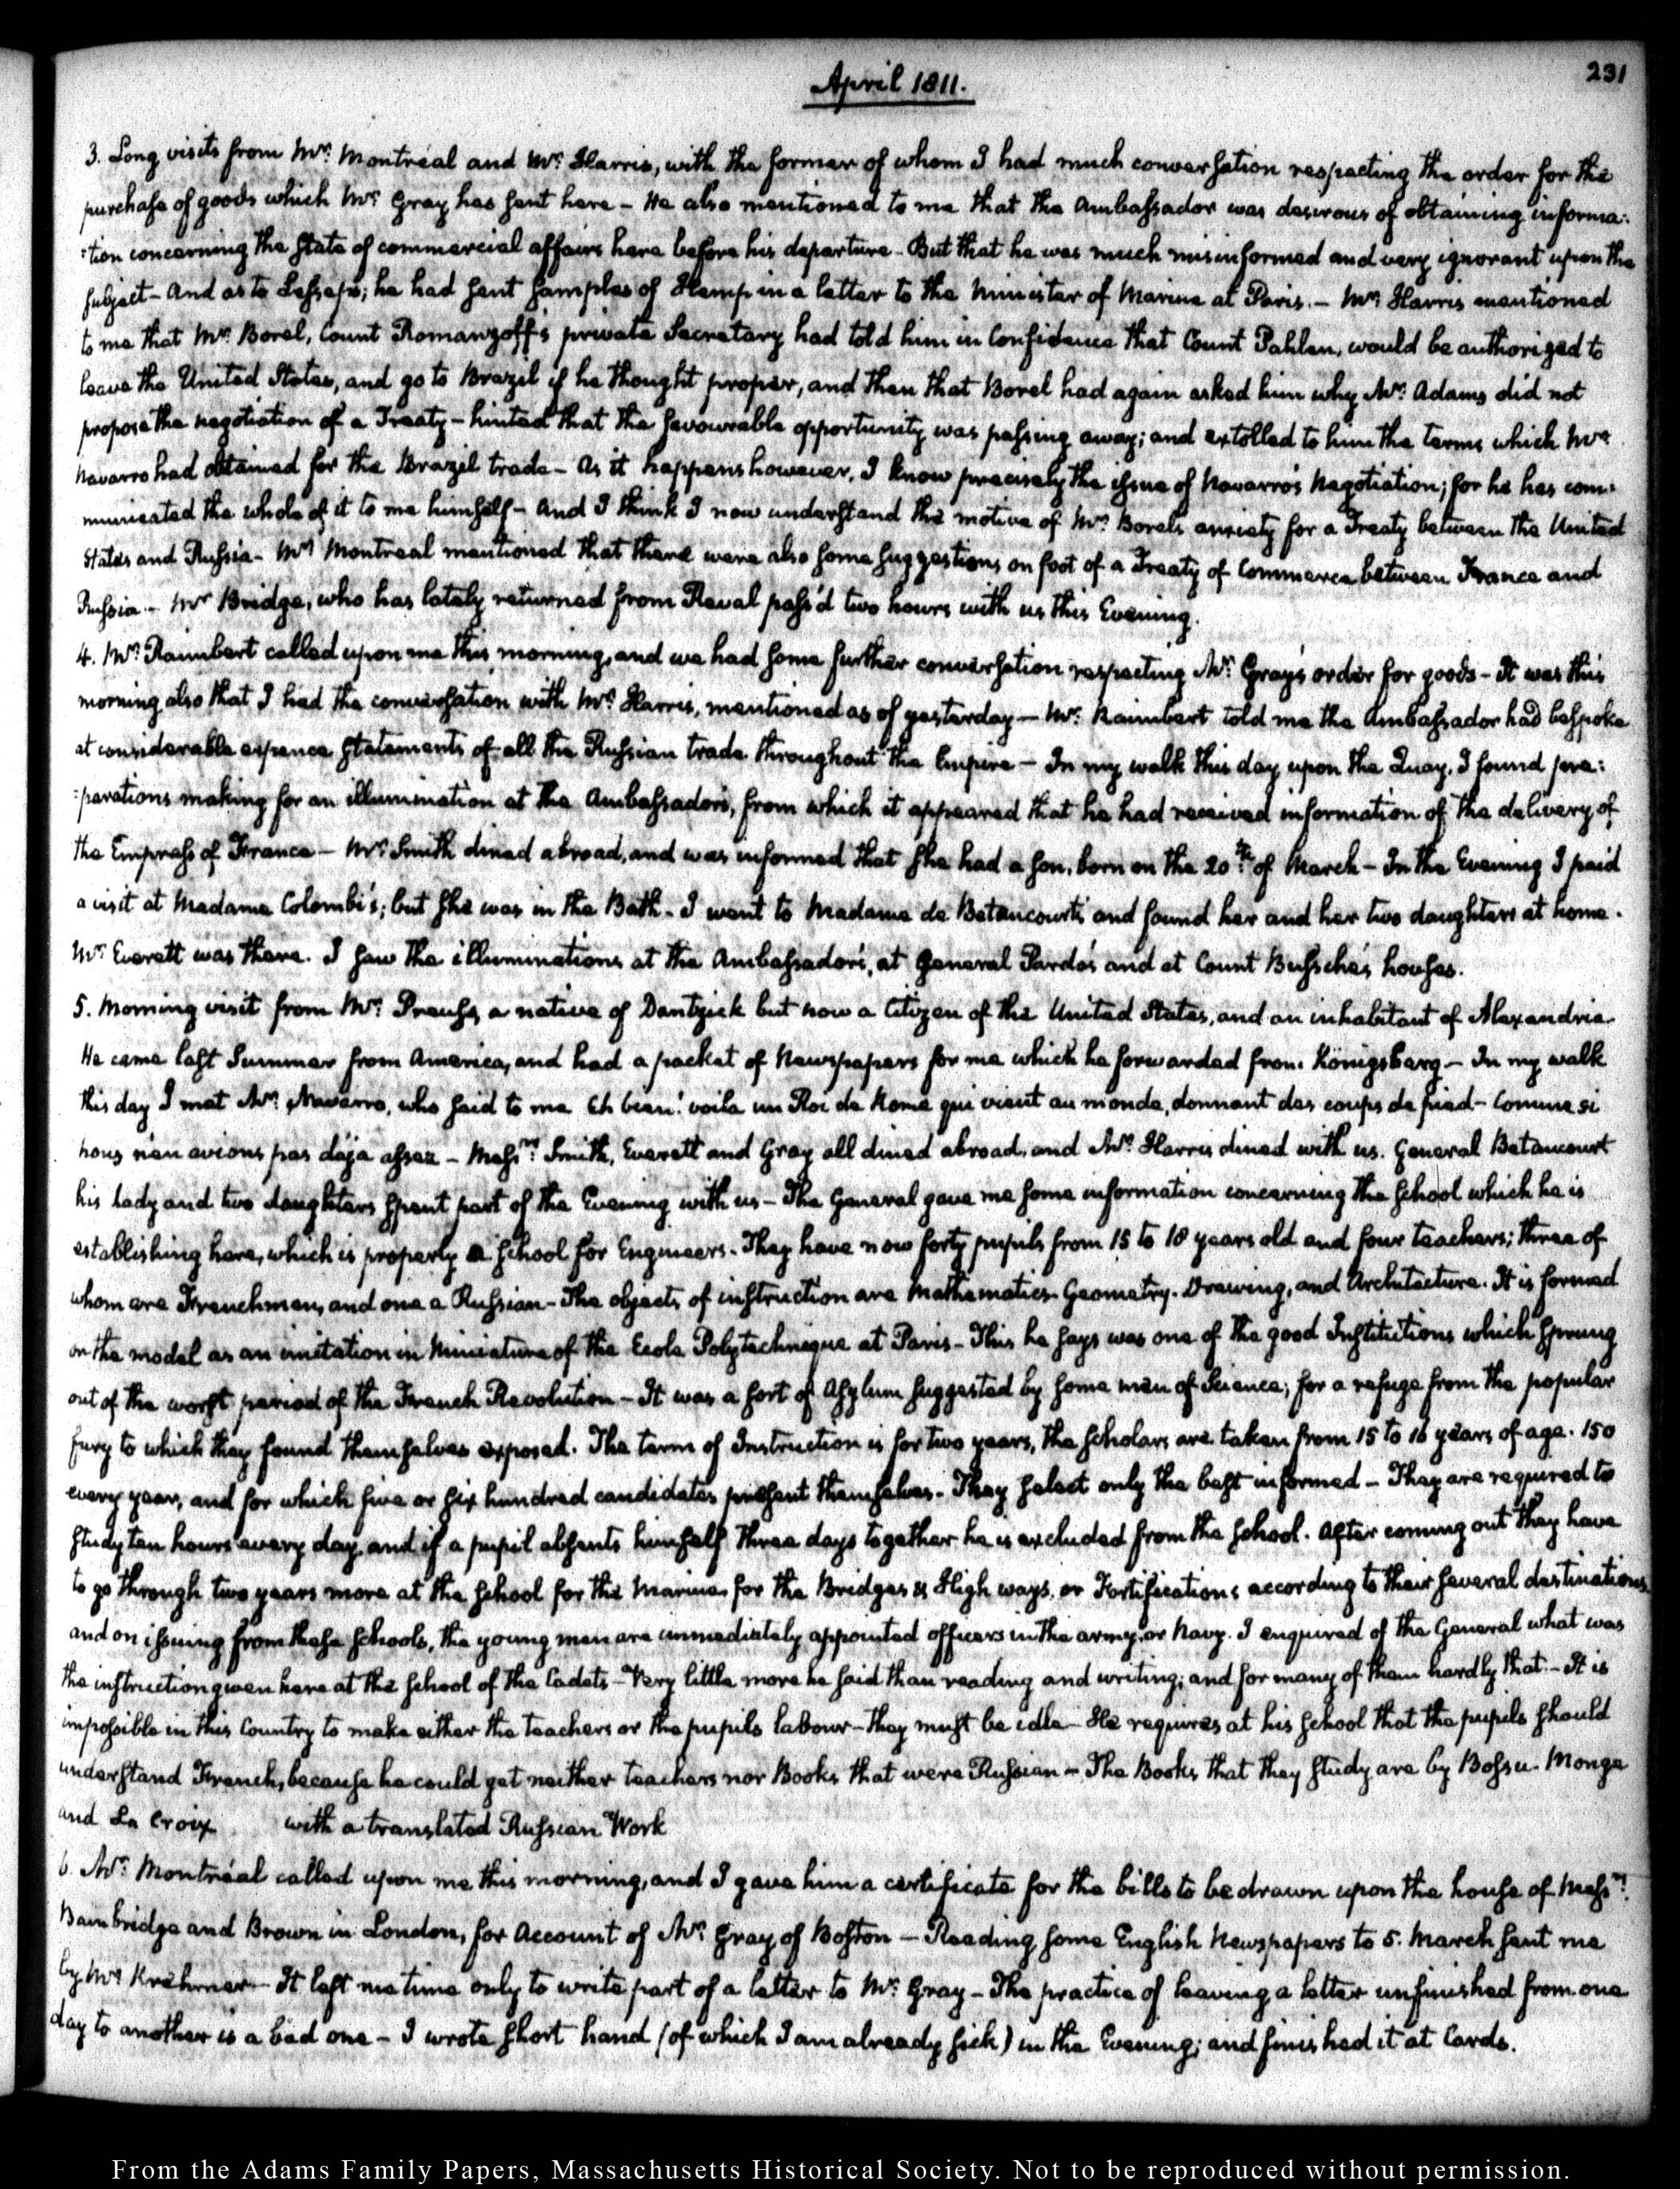 April 1811.
231
3. Long visits from Mr. Montréal and Mr. Harris, with the former of whom I had much conversation respecting the order for the
purchase of goods which Mr. Gray has sent here – He also mentioned to me that the Ambassador was desirous of obtaining informa:
:tion concerning the state of commercial affairs here before his departure – But that he was much misinformed and very ignorant upon the
subject – And as to Lesseps; he had sent samples of Hemp in a letter to the Minister of Marine at Paris. – Mr. Harris mentioned
to me that Mr. Borel, Count Romanzoff's private Secretary had told him in Confidence that Count Pahlen, would be authorized to
leave the United States, and go to Brazil if he thought proper, and then that Borel had again asked him why Mr. Adams did not
propose the negotiation of a Treaty – hinted that the favourable opportunity was passing away; and extolled to him the terms which Mr.
Navarro had obtained for the Brazil trade – As it happens however, I know precisely the issue of Navarro's Negotiation; for he has com:
municated the whole of it to me himself – And I think I now understand the motive of Mr. Borel's anxiety for a Treaty between the United
States and Russia – Mr. Montreal mentioned that there were also some suggestions on foot of a Treaty of Commerce between France and
Russia. – Mr. Bridge, who has lately returned from Reval pass'd two hours with us this Evening.
4. Mr. Raimbert called upon me this morning, and we had some further conversation respecting Mr. Gray's order for goods – It was this
morning also that I had the conversation with Mr. Harris, mentioned as of yesterday – Mr. Raimbert told me the Ambassador had bespoke
at considerable expence statements of all the Russian trade throughout the Empire – In my walk this day upon the Quay, I found pre:
:parations making for an illumination at the Ambassador's, from which it appeared that he had received information of the delivery of
the Empress of France – Mr. Smith dined abroad, and was informed that she had a son, born on the 20th. of March – In the Evening I paid
a visit at Madame Colombi's; but she was in the Bath. I went to Madame de Betancourt's and found her and her two daughters at home.
Mr. Everett was there. I saw the illuminations at the Ambassador's, at General Pardo's and at Count Bussche's houses.
5. Morning visit from Mr. Preuss, a native of Dantzick but now a Citizen of the United States, and an inhabitant of Alexandria.
He came last Summer from America, and had a packet of Newspapers for me which he forwarded from Königsberg – In my walk
this day I met Mr. Navarro, who said to me Eh bien! voila un Roi de Rome qui vient au monde, donnant des coups de pied – Comme si
nous n'en avions pas déja assez – Messrs. Smith, Everett and Gray all dined abroad, and Mr. Harris dined with us. General Betancourt
his Lady and two daughters spent part of the Evening with us – The General gave me some information concerning the school which he is
establishing here, which is properly a school for Engineers. They have now forty pupils from 15 to 18 years old and four teachers; three of
whom are Frenchmen, and one a Russian – The objects of instruction are Mathematics Geometry. Drawing, and Architecture. It is formed
on the model as an imitation in Miniature of the Ecole Polytechnique at Paris – This he says was one of the good Institutions which sprung
out of the worst period of the French Revolution – It was a sort of Asylum suggested by some men of Science, for a refuge from the popular
fury to which they found themselves exposed. The term of Instruction is for two years, the scholars are taken from 15 to 16 years of age. 150
every year, and for which five or six hundred candidates present themselves. They select only the best informed – They are required to
study ten hours every day, and if a pupil absents himself three days together he is excluded from the school. After coming out they have
to go through two years more at the school for the Marine, for the Bridges & High ways, or Fortifications according to their several destinations
and on issuing from these schools, the young men are immediately appointed officers in the army, or Navy. I enquired of the General what was
the instruction given here at the school of the Cadets – Very little more he said than reading and writing; and for many of them hardly that – It is
impossible in this Country to make either the teachers or the pupils labour – They must be idle – He requires at his school that the pupils should
understand French, because he could get neither teachers nor Books that were Russian – The Books that they study are by Bossu. Monge
and La Croix with a translated Russian Work
6. Mr. Montréal called upon me this morning, and I gave him a certificate for the bills to be drawn upon the house of Messrs.
Bainbridge and Brown in London, for Account of Mr. Gray of Boston – Reading some English Newspapers to 5. March sent me
by Mr. Krehmer – It left me time only to write part of a letter to Mr. Gray – The practice of leaving a letter unfinished from one
day to another is a bad one – I wrote short hand (of which I am already sick) in the Evening; and finished it at Cards.
From the Adams Family Papers, Massachusetts Historical Society. Not to be reproduced without permission.